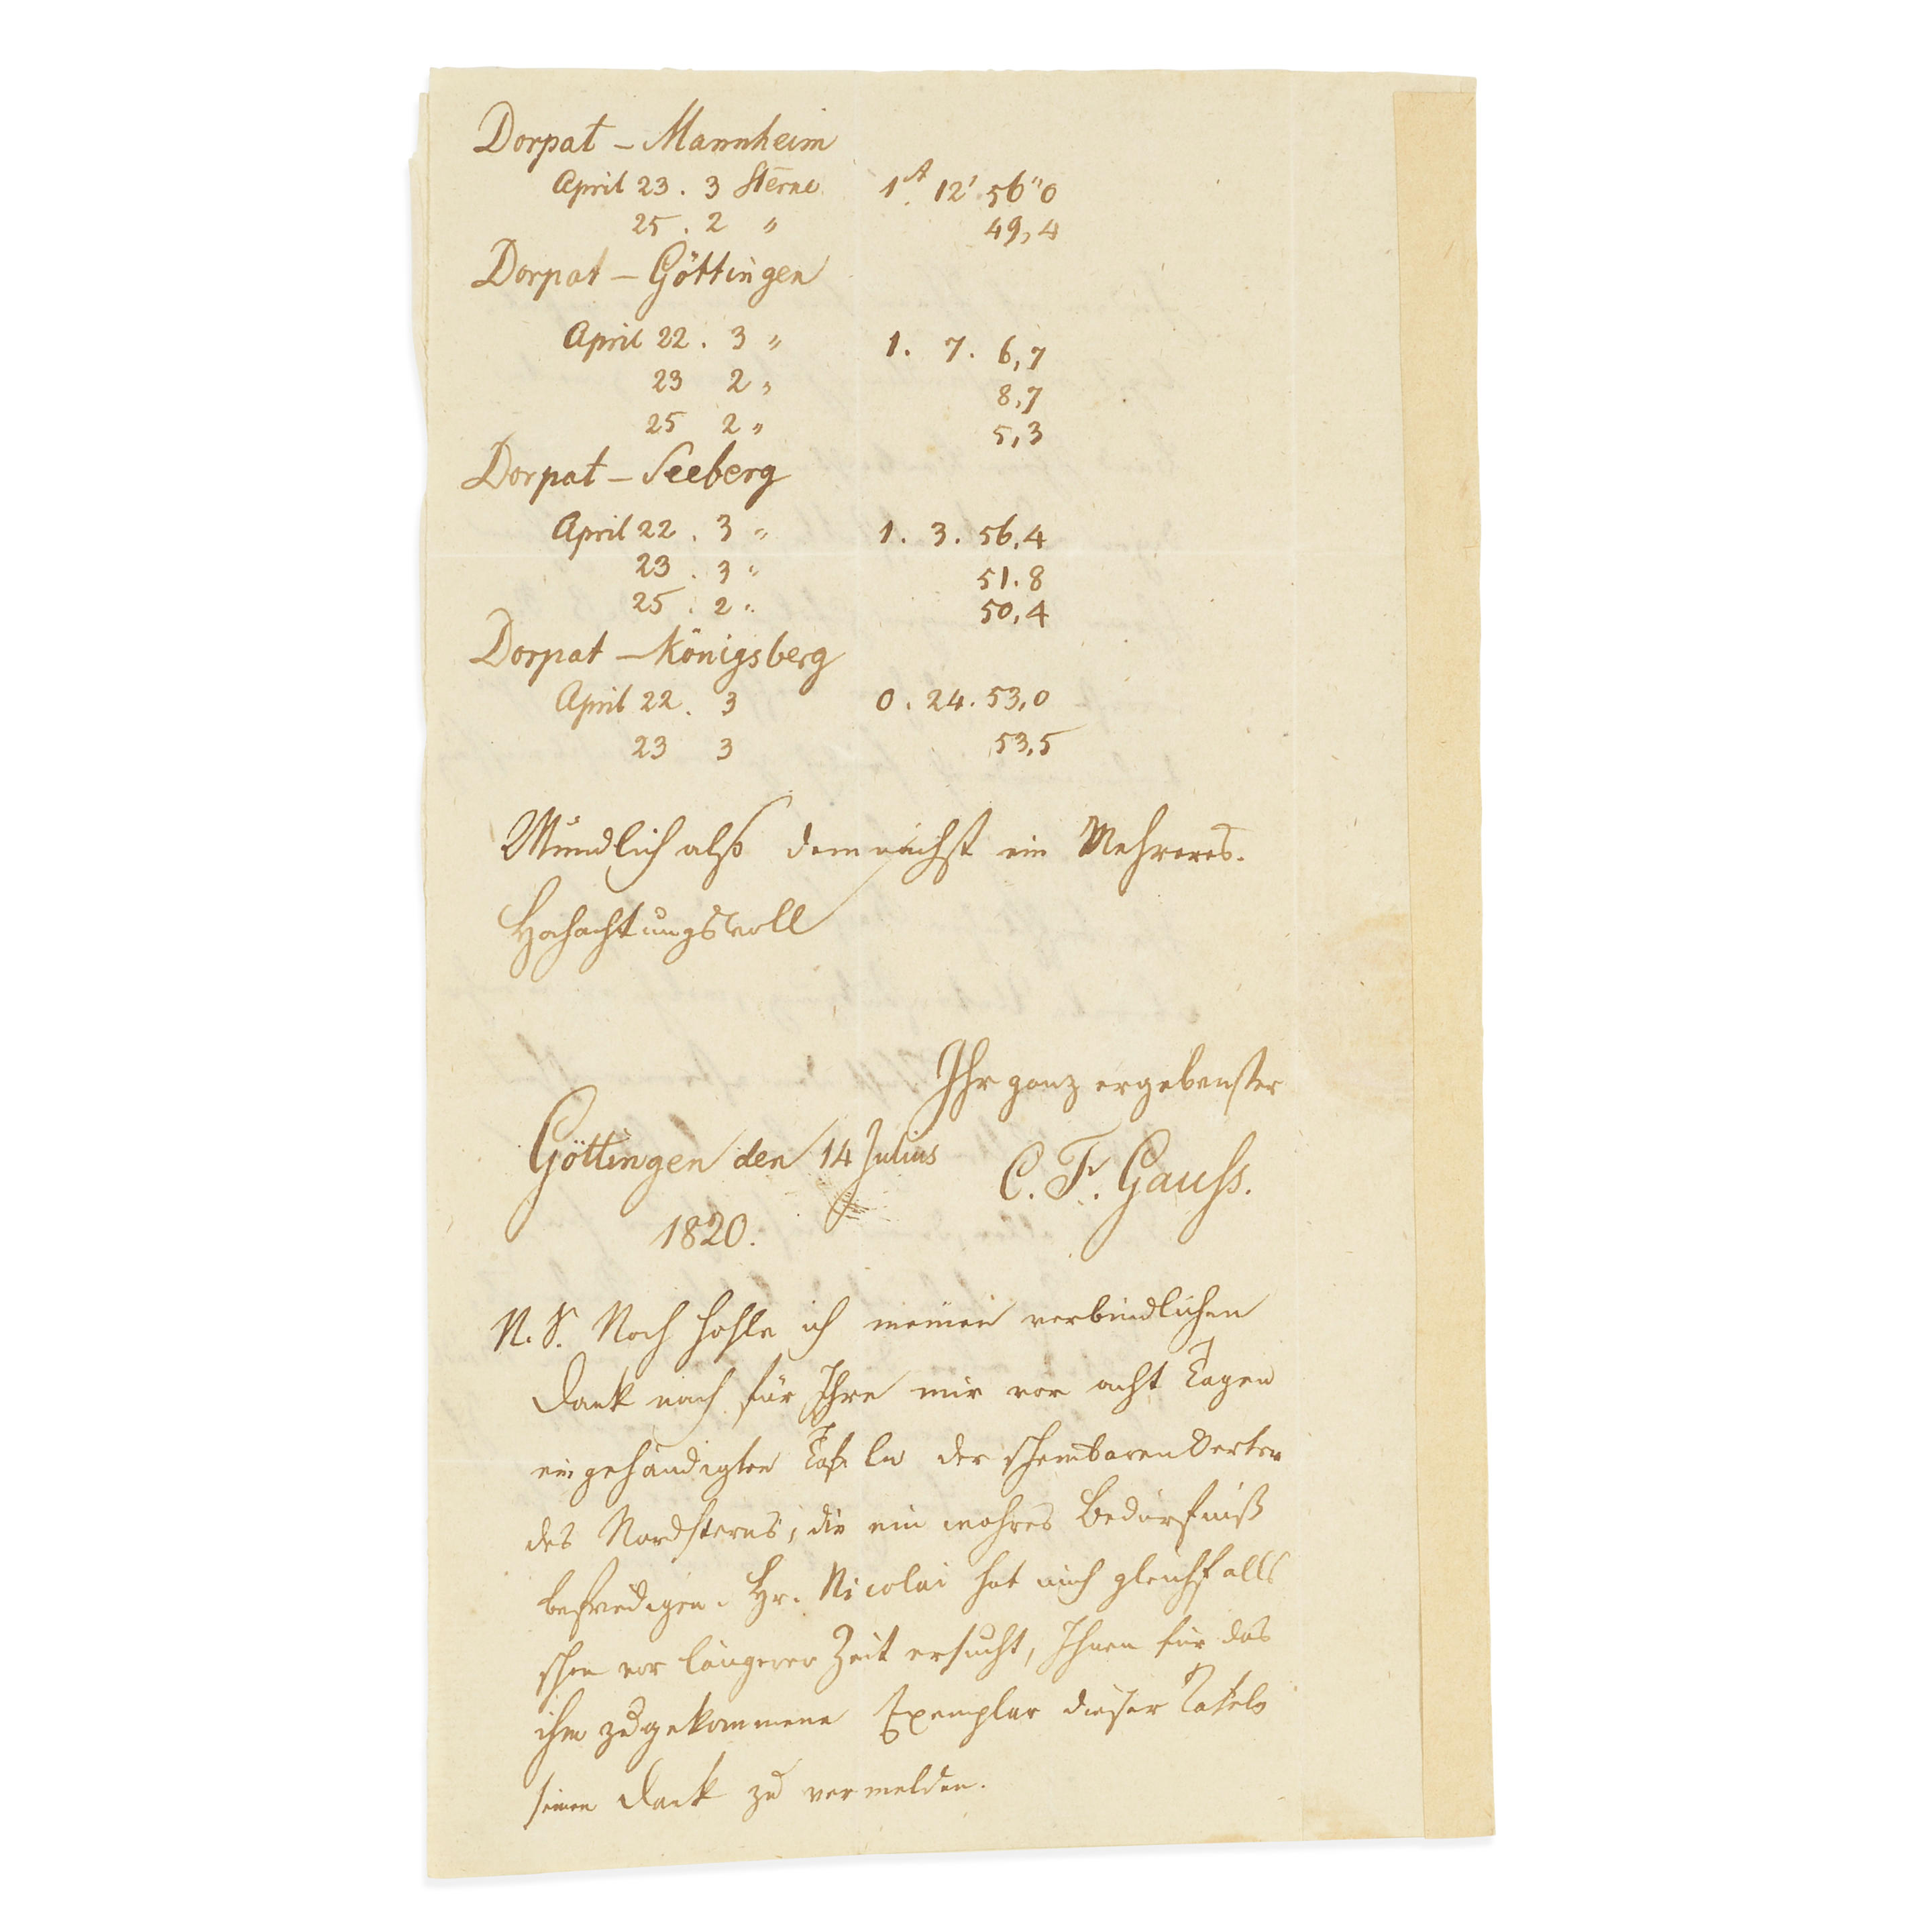 Dorpat – Mannheim
April 23. 3 Sterne 1ˢᵗ 12' 56"0
25. 2 " 49,4
Dorpat – Göttingen
April 22. 3 " 1. 7. 6,7
23 2 " 8,7
25 2 " 5,3
Dorpat – Seeberg
April 22. 3 " 1. 3. 56,4
23. 3 " 51.8
25. 2 " 50,4
Dorpat – Königsberg
April 22. 3 0. 24. 53,0
23 3 53,5
Mündlich also demnächst ein Mehreres.
Hochachtungsvoll
Ihr ganz ergebenster
Göttingen den 14 Julius C. F. Gauſs.
1820.
N. S. Noch hohle ich meinen verbindlichen
Dank nach für Ihre mir vor acht Tagen
eingehändigten Tafeln der scheinbaren Oerter
des Nordsterns, die ein wahres Bedürfniß
befriedigen. Hr. Nicolai hat mich gleichfalls
schon vor längerer Zeit ersucht, Ihnen für das
ihm zugekommene Exemplar dieser Tafeln
seinen Dank zu vermelden.